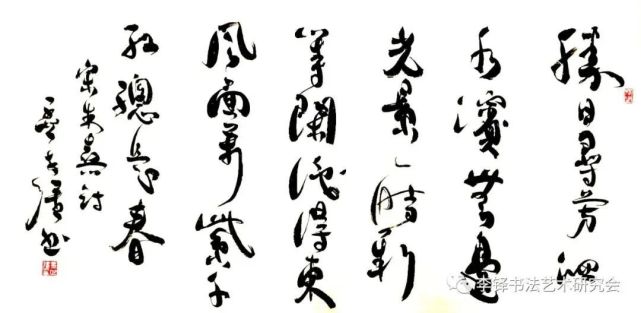 勝日尋芳泗
水濱無邊
光景一時新
等閑識得東
風面萬紫千
紅總是春
宋朱熹詩
书
李铎书法艺术研究会